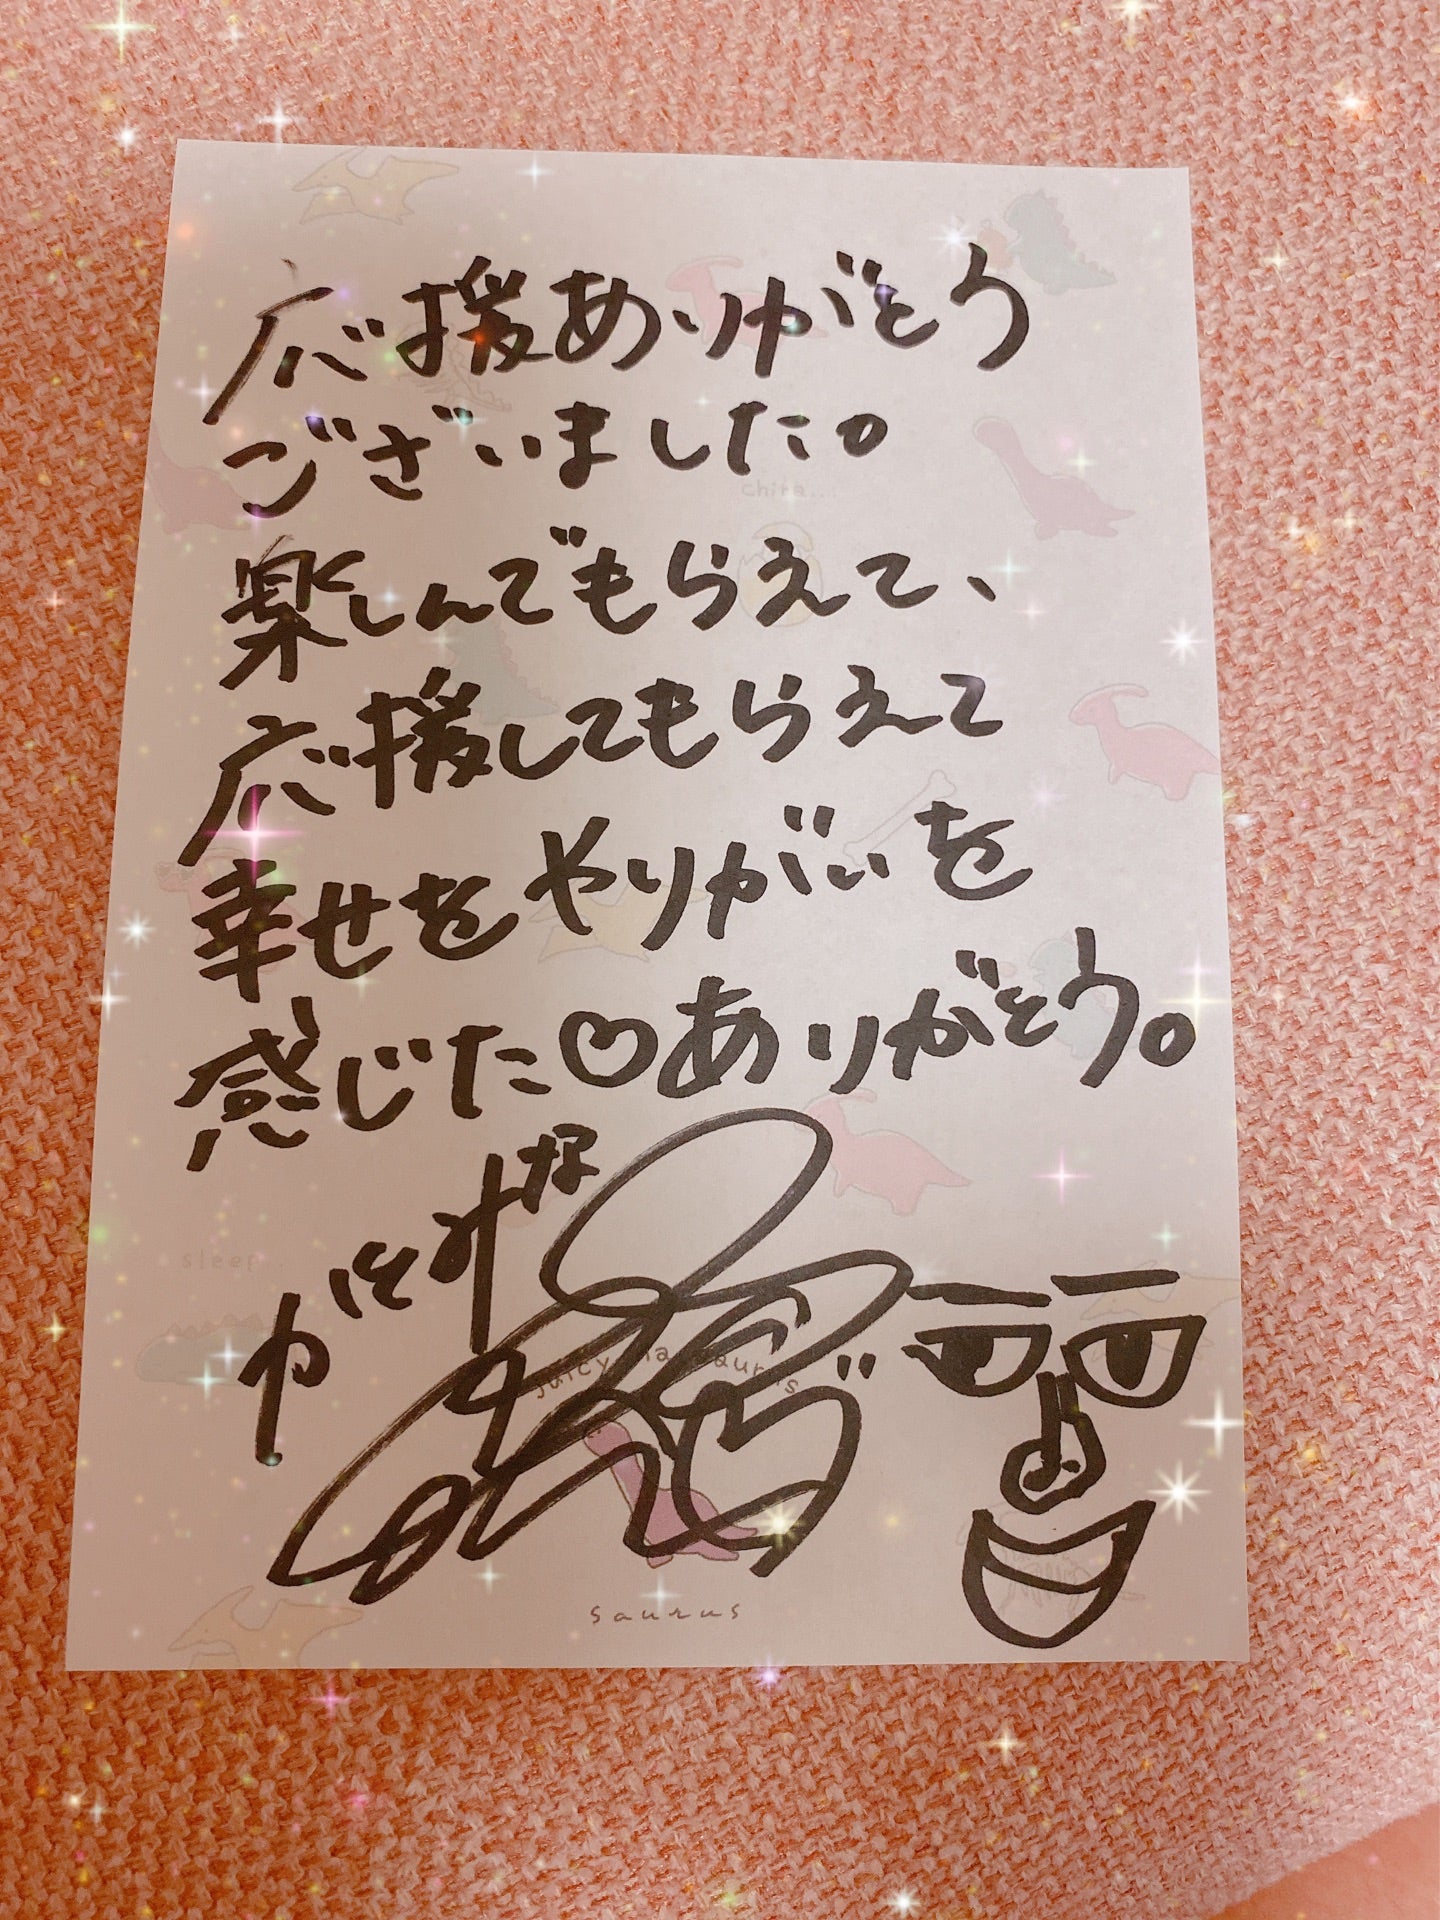 応援ありがとう
ございました。
chira...
楽しんでもらえて、
応援してもらえて
幸せをやりがいを
感じた♡ありがとう。
sleep...
saurus